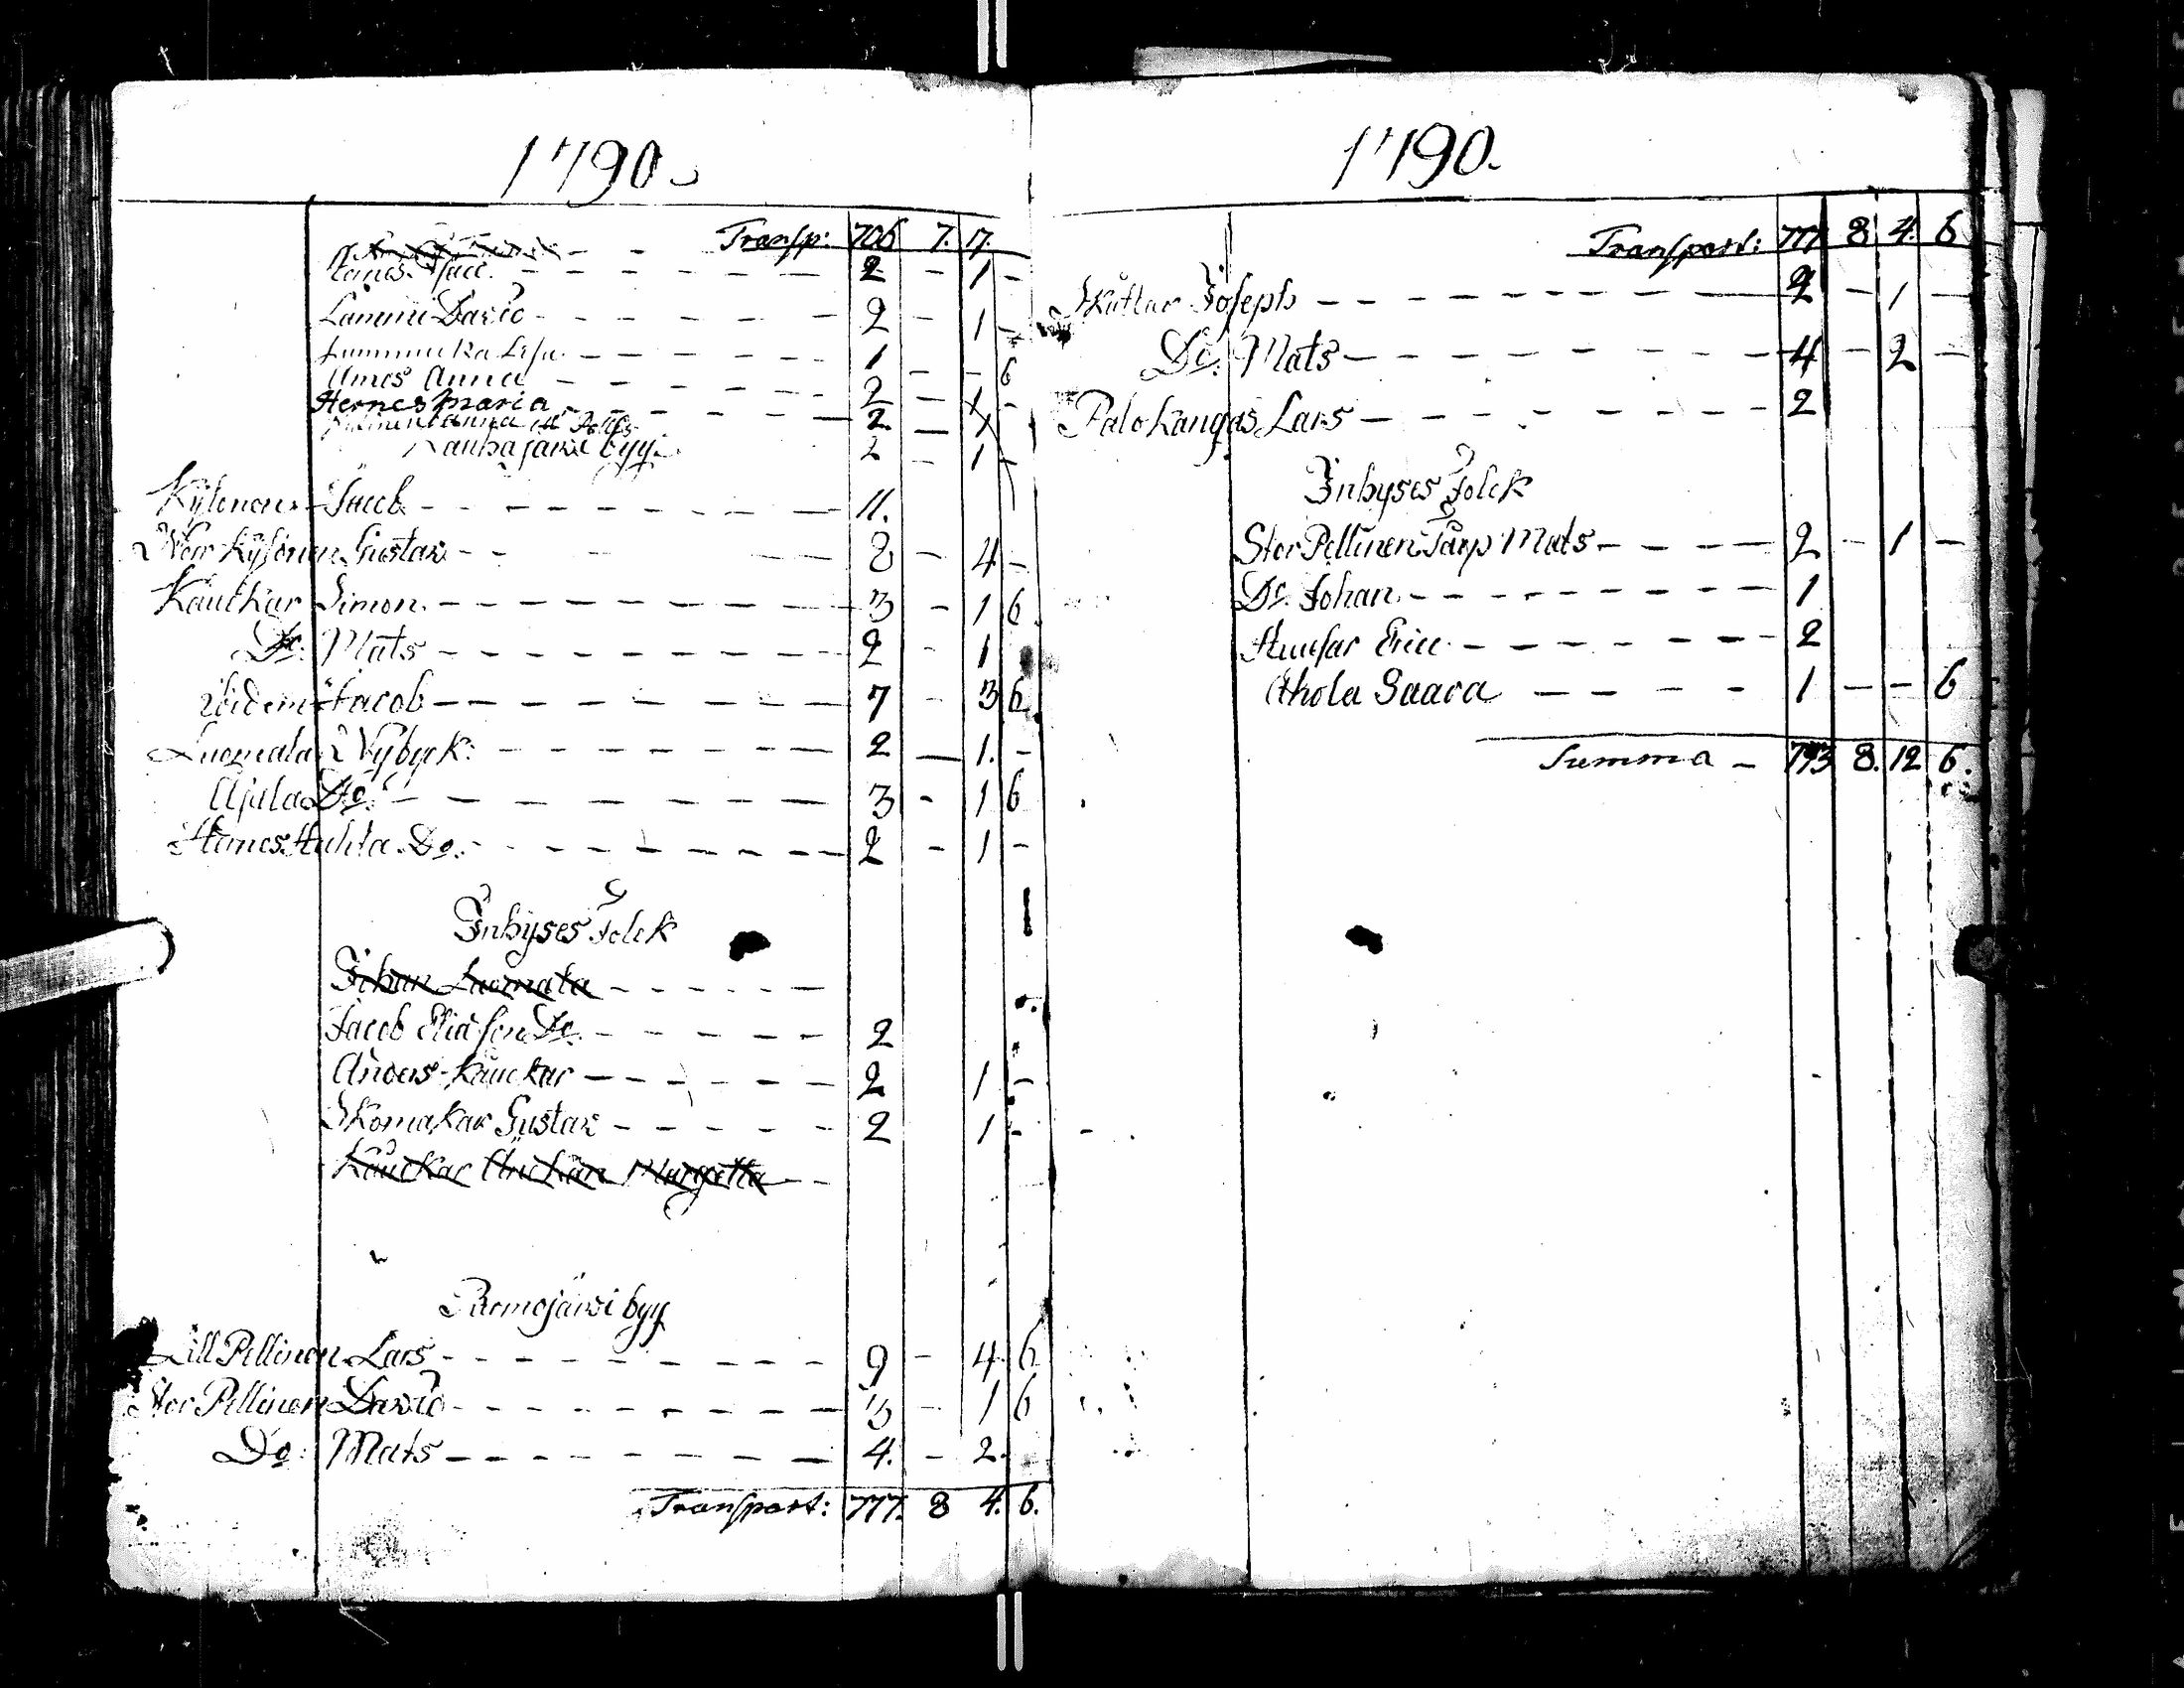 1790.
Transp: 706 7. 17.
2 - 1 -
Lammi David - - - - - - - 2 - 1 -
1 - - 6
Anna - - - - - 2 - 1 -
Hernes Maria - - - - - 2 - 1
byy. 2 - 1 -
Kylönen Jacob - - - - - - - 11.
Norr Kylönen Gustav - - - - 8 - 4 -
Kauckar Simon - - - - - - - - - 3 - 1 6
Do: Mats - - - - - - - - - 2 - 1
Ibidem Jacob - - - - - - - - - 7 - 3 6
Luomala Nybyk: - - - - - - - 2 - 1. -
Ajula Do: - - - - - - - - 3 - 1 6
Hernes Huhta Do. - - - - - - - - 2 - 1 -
Inhyses Folck
Johan Luomala - - - - - -
Jacob Eliason Do. - - - - - - 2
Anders Kauckar - - - - - - 2 1 -
Skomakar Gustav - - - - - 2 1 -
Kauckar Margetta - -
byy
Lill Pellinen Lars - - - - - - - - - 9 - 4 6
Stor Pellinen David - - - - - - - - - 3 - 1 6
Do: Mats - - - - - - - - - 4. - 2.
Transport: 777. 8 4. 6.
1790.
Transport: 777 8 4. 6
Joseph - - - - - - - - - 2 - 1 -
Do: Mats - - - - - - - - - - 4 - 2 -
Palokangas Lars - - - - - - - - 2
Inhyses Folck
Stor Pellinen Mats - - - - 2 - 1 -
Do. Johan. - - - - - - - - - 1
Eric - - - - - - - 2
Ahola Saara - - - - - 1 - - 6
Summa - 793 8. 12 6.